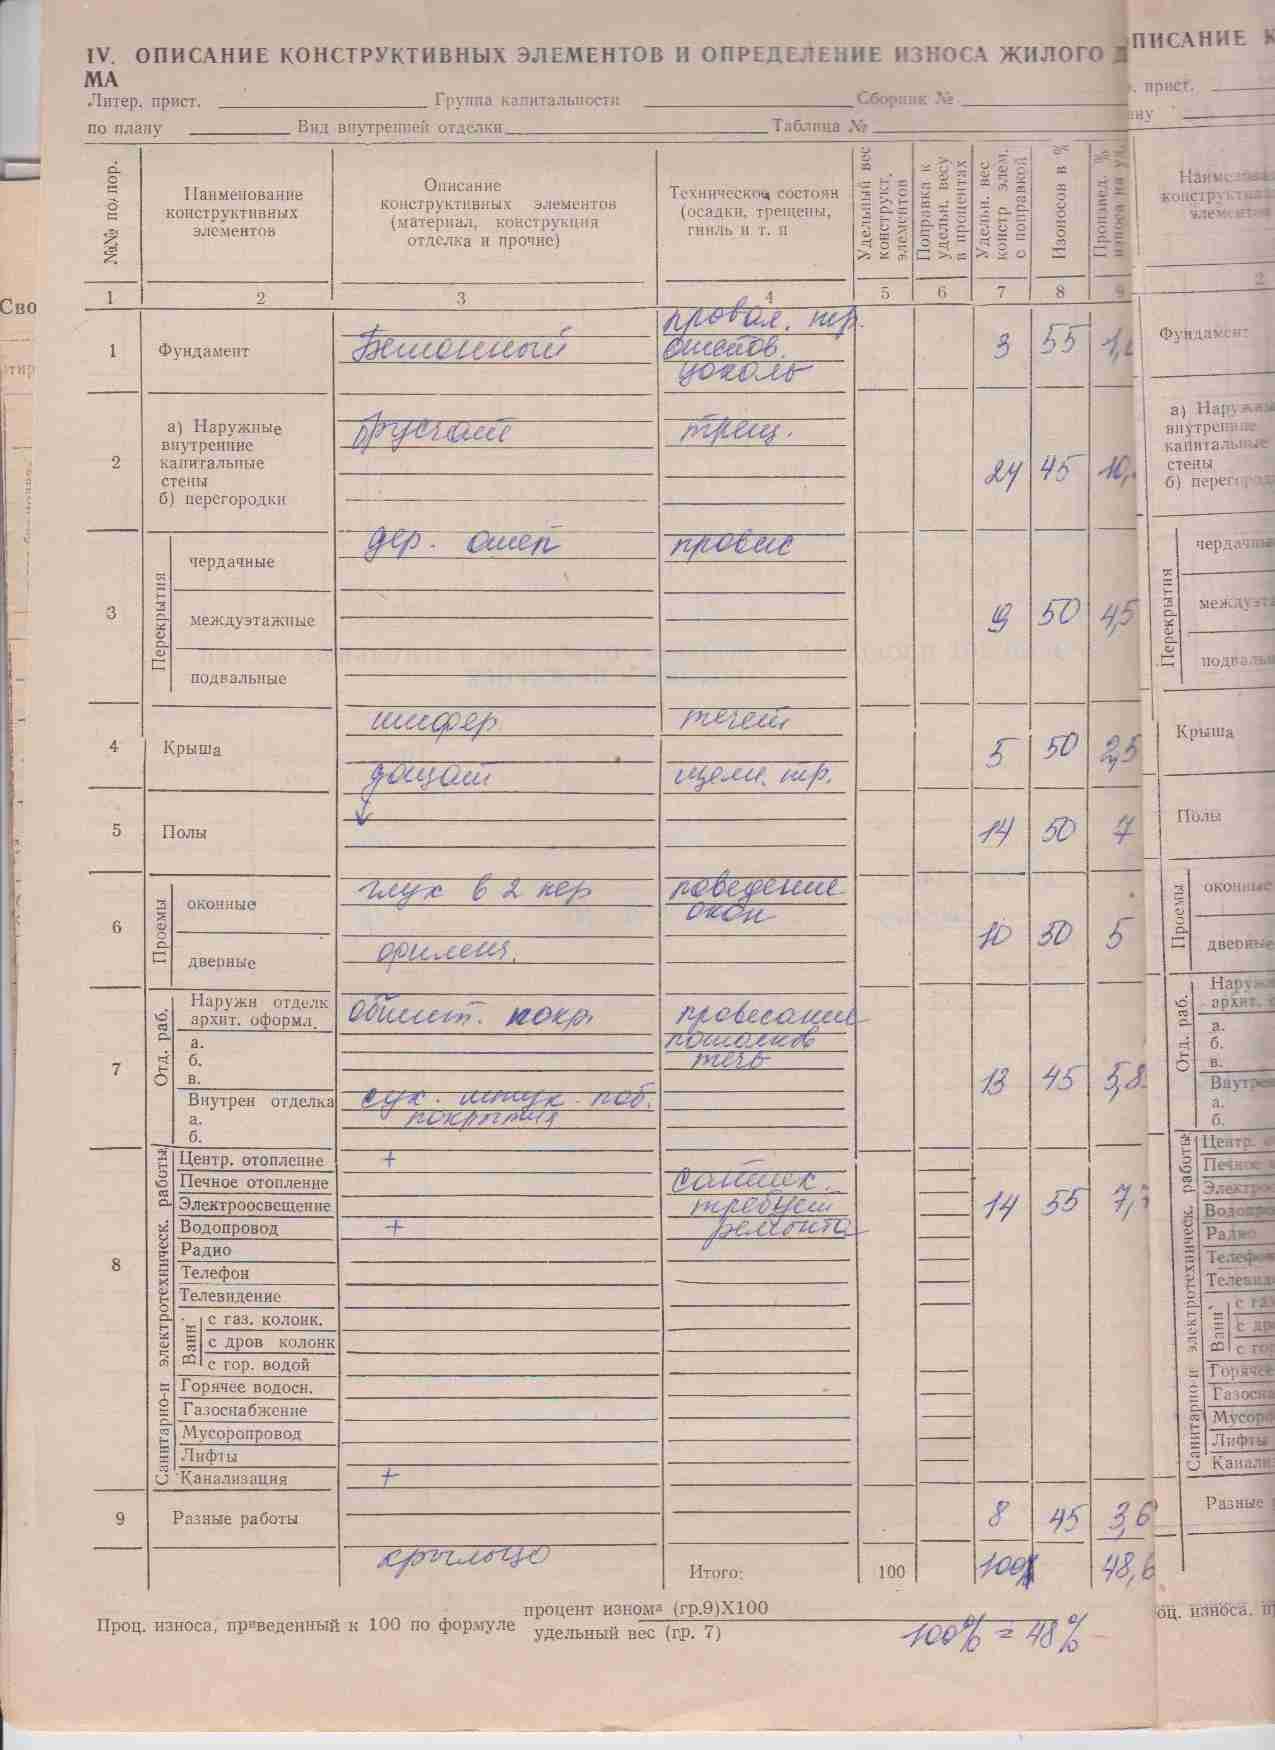 IV. ОПИСАНИЕ КОНСТРУКТИВНЫХ ЭЛЕМЕНТОВ И ОПРЕДЕЛЕНИЕ ИЗНОСА ЖИЛОГО Д
МА
Литер. прист. Группа капитальности Сборник №
по плану Вид внутренней отделки Таблица №
№№ по пор.
Наименование
конструктивных
элементов
Описание
конструктивных элементов
(материал, конструкция
отделка и прочие)
Техническое состоян
(осадки, трещены,
гниль и т. п
Удельный вес
конструкт.
элементов
Поправка к
удельн. весу
в процентах
Удельн. вес
констр элем.
с поправкой
Изоносов в %
Произвед. %
износа на уд.
1 2 3 4 5 6 7 8 9
1 Фундамент Бетонный
цоколь
3 55
2
а) Наружные
внутренние
капитальные
стены
б) перегородки
брусчат трещ.
24 45 10,
3 Перекрытия
чердачные дер. отеп провис
междуэтажные 9 50 4,5
подвальные
4 Крыша шифер течет 5 50 2,5
дощат щели. тр.
5 Полы 14 50 7
6 Проемы
оконные глух в 2 пер поведение
окон
10 50 5
дверные филенч.
7 Отд. раб.
Наружн отделк
архит. оформл.
а.
б.
в.
Обшит. покр провесание
потолков
течь
13 45 5,8
Внутрен отделка сух. штук. поб.
а. покрытия
б.
8 Санитарно-и электротехническ. работы
Центр. отопление +
Печное отопление сантех.
Электроосвещение требует 14 55 7,
Водопровод + ремонта
Радио
Телефон
Телевидение
Ванн
с газ. колонк.
с дров колонк
с гор. водой
Горячее водосн.
Газоснабжение
Мусоропровод
Лифты
Канализация +
9 Разные работы 8 45 3,6
крыльцо Итого: 100 100 48,6
Проц. износа, приведенный к 100 по формуле процент изнома (гр.9)Х100
удельный вес (гр. 7) 100% = 48%
ПИСАНИЕ К
. прист.
ану
Наименован
конструктивн
элементов
2
Фундамент
а) Наружны
внутренние
капитальные
стены
б) перегородк
Перекрытия
чердачны
междуэта
подвальны
Крыша
Полы
Проемы
оконные
дверные
Отд. раб.
Наруж
архит. о
а.
б.
в.
Внутрен
а.
б.
Санитарно-и электротехническ. работы
Центр. о
Печное о
Электроо
Водопро
Радио
Телефон
Телевид
Ванн
с газ
с дро
с гор
Горячее
Газосна
Мусоро
Лифты
Канали
Разные
оц. износа, п
Сво